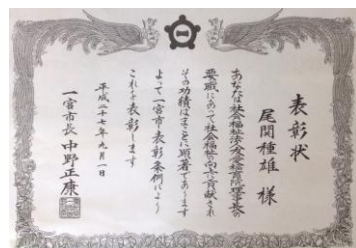 表彰状
尾関種雄 様
あなたは社会福祉法人理事長の
要職にあって社会福祉の向上に貢献され
その功績はまことに顕著であります
よって一宮市表彰条例により
これを表彰します
平成二十七年九月一日
一宮市長 中野正康